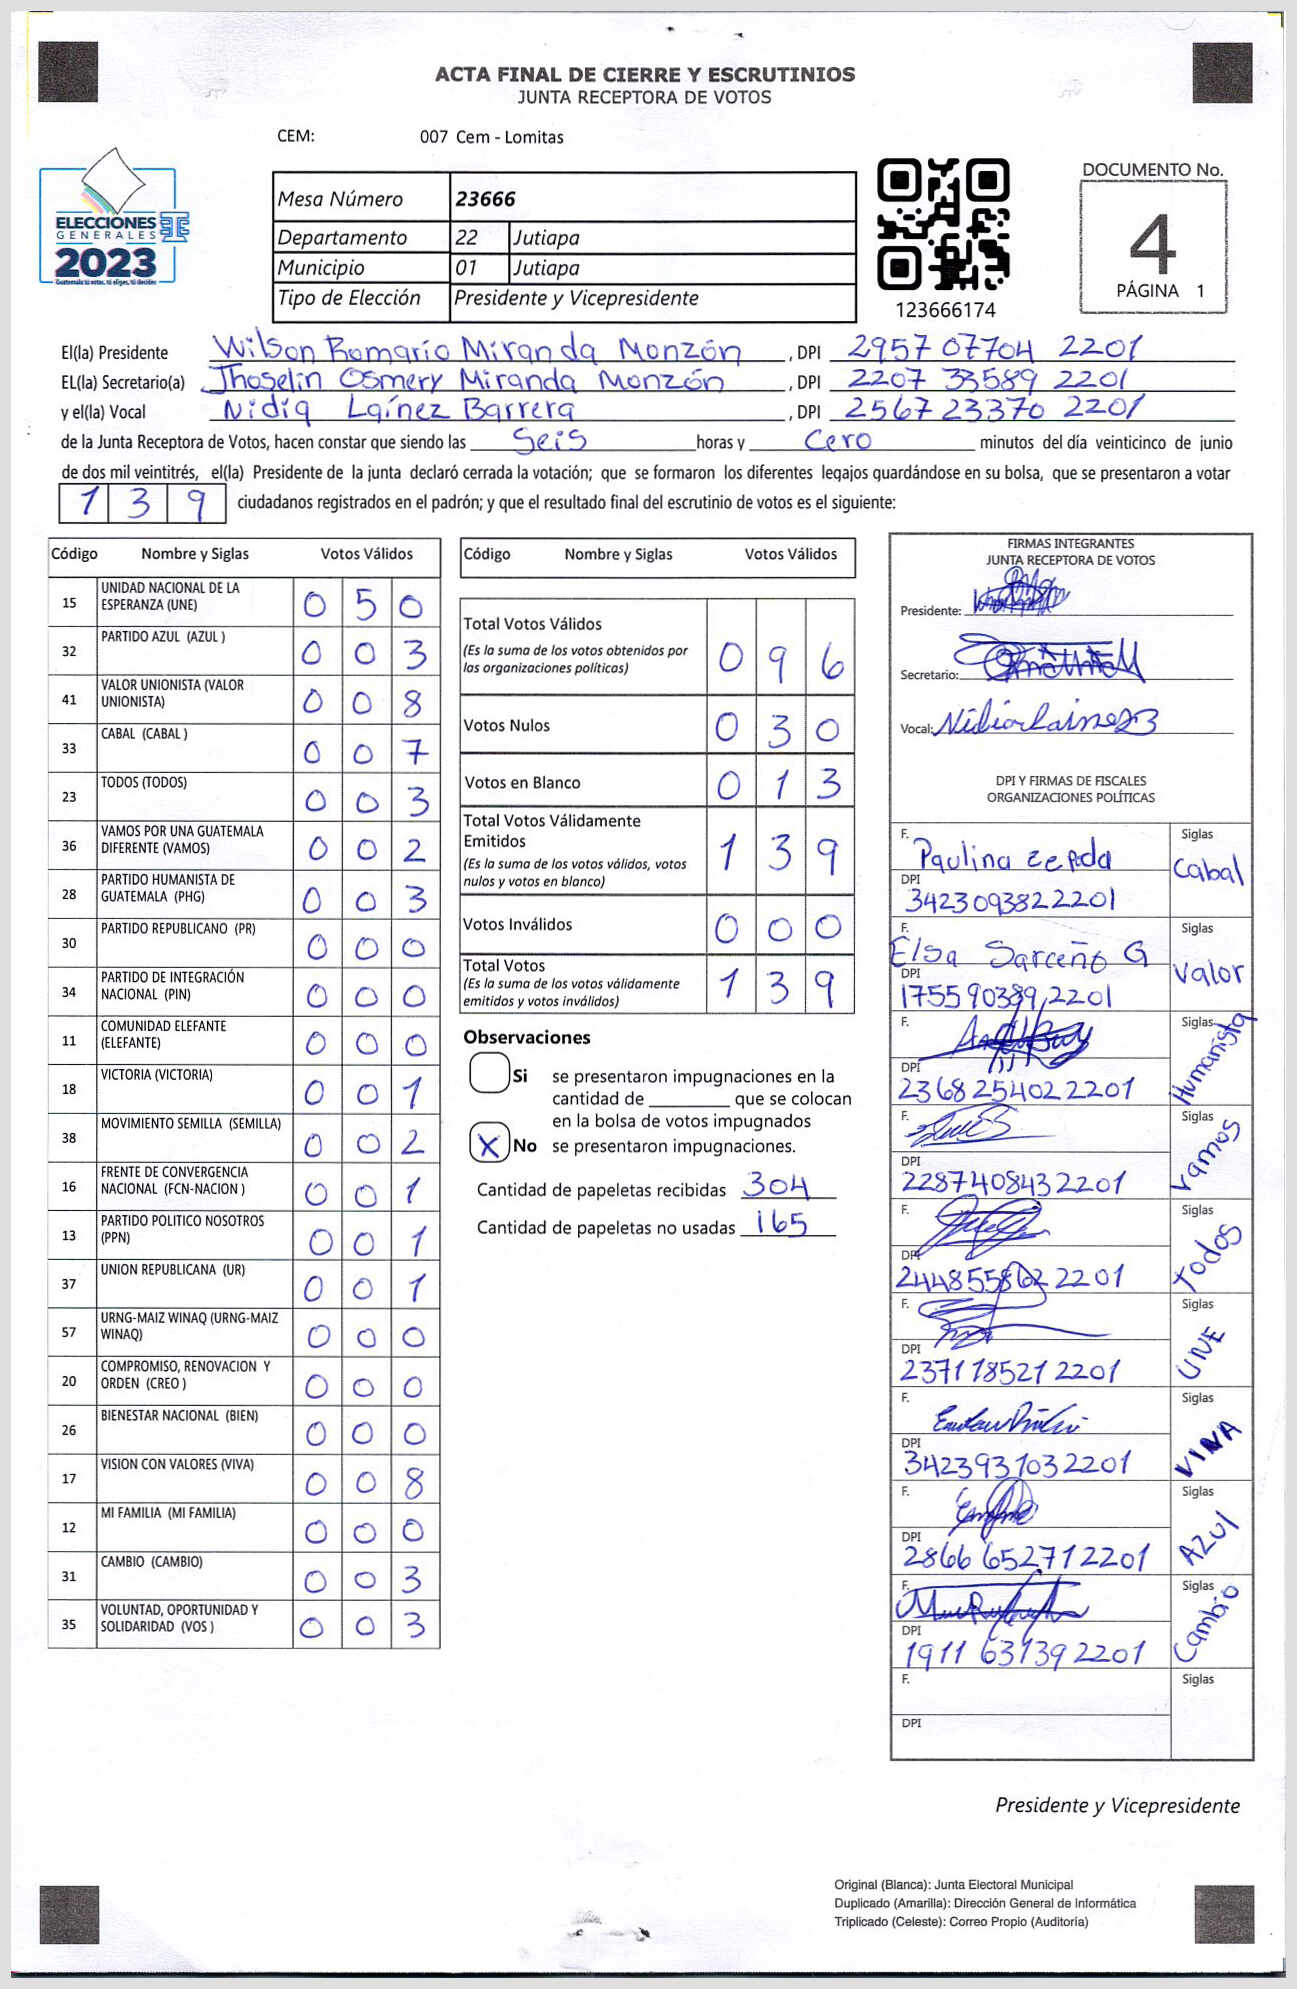 ACTA FINAL DE CIERRE Y ESCRUTINIOS
JUNTA RECEPTORA DE VOTOS
CEM: 007 Cem - Lomitas
ELECCIONES
GENERALES
2023
Guatemala tú votas, tú eliges, tú decides
Mesa Número 23666
Departamento 22 Jutiapa
Municipio 01 Jutiapa
Tipo de Elección Presidente y Vicepresidente
123666174
DOCUMENTO No.
4
PÁGINA 1
El(la) Presidente Wilson Romario Miranda Monzón, DPI 2957 07704 2201
EL(la) Secretario(a) Jhoselin Osmery Miranda Monzón, DPI 2207 33589 2201
y el(la) Vocal Nidia Laínez Barrera, DPI 2567 23370 2201
de la Junta Receptora de Votos, hacen constar que siendo las Seis horas y Cero minutos del día veinticinco de junio
de dos mil veintitrés, el(la) Presidente de la junta declaró cerrada la votación; que se formaron los diferentes legajos guardándose en su bolsa, que se presentaron a votar
1 3 9 ciudadanos registrados en el padrón; y que el resultado final del escrutinio de votos es el siguiente:
Código Nombre y Siglas Votos Válidos
15 UNIDAD NACIONAL DE LA
ESPERANZA (UNE) 0 5 0
32 PARTIDO AZUL (AZUL ) 0 0 3
41 VALOR UNIONISTA (VALOR
UNIONISTA) 0 0 8
33 CABAL (CABAL ) 0 0 7
23 TODOS (TODOS) 0 0 3
36 VAMOS POR UNA GUATEMALA
DIFERENTE (VAMOS) 0 0 2
28 PARTIDO HUMANISTA DE
GUATEMALA (PHG) 0 0 3
30 PARTIDO REPUBLICANO (PR) 0 0 0
34 PARTIDO DE INTEGRACIÓN
NACIONAL (PIN) 0 0 0
11 COMUNIDAD ELEFANTE
(ELEFANTE) 0 0 0
18 VICTORIA (VICTORIA) 0 0 1
38 MOVIMIENTO SEMILLA (SEMILLA) 0 0 2
16 FRENTE DE CONVERGENCIA
NACIONAL (FCN-NACION ) 0 0 1
13 PARTIDO POLITICO NOSOTROS
(PPN) 0 0 1
37 UNION REPUBLICANA (UR) 0 0 1
57 URNG-MAIZ WINAQ (URNG-MAIZ
WINAQ) 0 0 0
20 COMPROMISO, RENOVACION Y
ORDEN (CREO ) 0 0 0
26 BIENESTAR NACIONAL (BIEN) 0 0 0
17 VISION CON VALORES (VIVA) 0 0 8
12 MI FAMILIA (MI FAMILIA) 0 0 0
31 CAMBIO (CAMBIO) 0 0 3
35 VOLUNTAD, OPORTUNIDAD Y
SOLIDARIDAD (VOS ) 0 0 3
Código Nombre y Siglas Votos Válidos
Total Votos Válidos
(Es la suma de los votos obtenidos por
las organizaciones políticas) 0 9 6
Votos Nulos 0 3 0
Votos en Blanco 0 1 3
Total Votos Válidamente
Emitidos
(Es la suma de los votos válidos, votos
nulos y votos en blanco) 1 3 9
Votos Inválidos 0 0 0
Total Votos
(Es la suma de los votos válidamente
emitidos y votos inválidos) 1 3 9
Observaciones
Si se presentaron impugnaciones en la
cantidad de ________ que se colocan
en la bolsa de votos impugnados
X No se presentaron impugnaciones.
Cantidad de papeletas recibidas 304
Cantidad de papeletas no usadas 165
FIRMAS INTEGRANTES
JUNTA RECEPTORA DE VOTOS
Presidente:
Secretario:
Vocal: Nidia Lainez B
DPI Y FIRMAS DE FISCALES
ORGANIZACIONES POLÍTICAS
F. Paulina Zepeda Siglas
DPI Cabal
3423093822201
F. Elsa Sarceño G Siglas
DPI Valor
175590389 2201
F. Siglas
DPI Humanista
2368254022201
F. Siglas
DPI Vamos
2287408432201
F. Siglas
DPI Todos
244855862 2201
F. Siglas
DPI UNE
237118521 2201
F. Siglas
DPI VIVA
3423931032201
F. Siglas
DPI AZUL
2866 652712201
F. Siglas
DPI Cambio
1911 631392201
F. Siglas
DPI
Presidente y Vicepresidente
Original (Blanca): Junta Electoral Municipal
Duplicado (Amarilla): Dirección General de Informática
Triplicado (Celeste): Correo Propio (Auditoría)